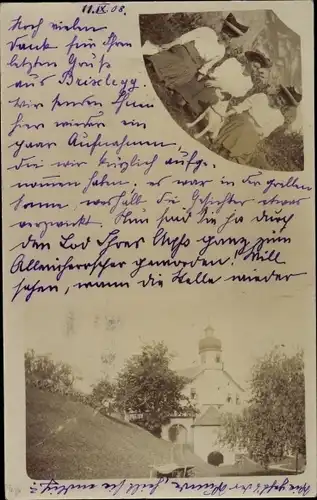 11.IX.08.
Noch vielen
Dank für Ihren
letzten Gruß
aus Brixlegg.
Wir senden Ihnen
hier wieder ein
paar Aufnahmen,
die wir kürzlich aufge-
nommen haben, es war in der grellen
Sonne, weshalb die Gesichter etwas
verzwickt. Nun sind Sie ja durch
den Tod Ihres Chefs ganz zum
Alleinherrscher geworden! Will
sehen, wann die Stelle wieder